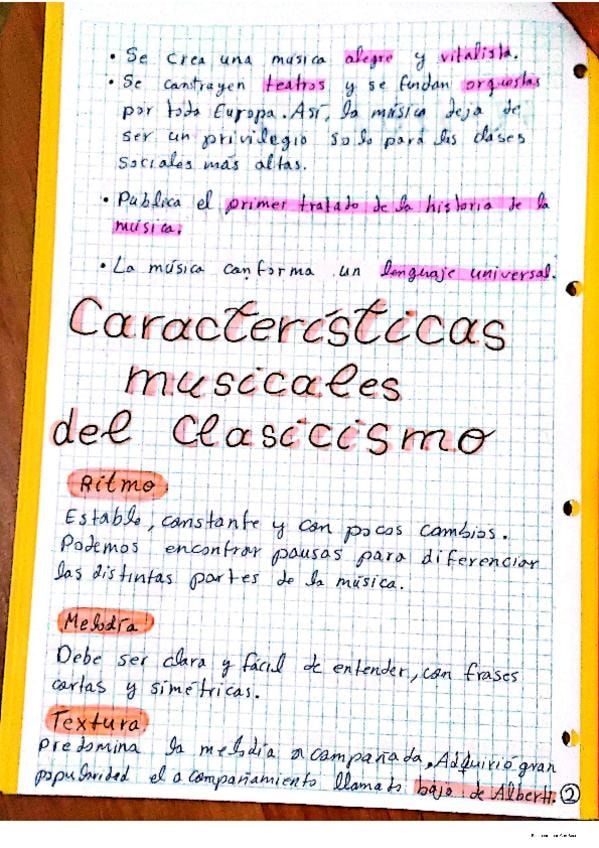 • Se crea una música alegre y vitalista.
• Se construyen teatros y se fundan orquestas
por toda Europa. Así, la música deja de
ser un privilegio solo para las clases
sociales más altas.
• Publica el primer tratado de la historia de la
música.
• La música conforma un lenguaje universal.
Características
musicales
del Clasicismo
Ritmo
Estable, constante y con pocos cambios.
Podemos encontrar pausas para diferenciar
las distintas partes de la música.
Melodía
Debe ser clara y fácil de entender, con frases
cortas y simétricas.
Textura
Predomina la melodía acompañada. Adquirió gran
popularidad el acompañamiento llamado bajo de Alberti.
2